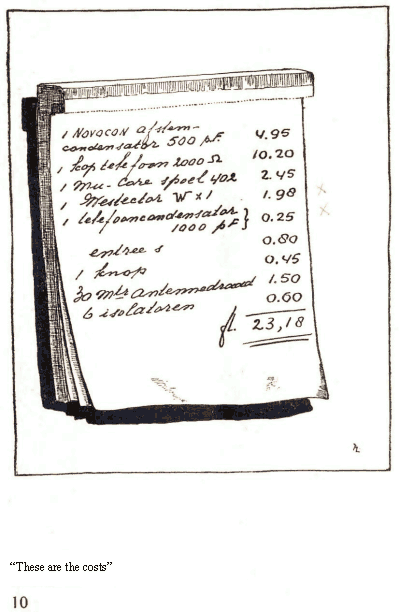 1 NOVOCON afstem-
condensator 500 pF 4.95
1 koptelefoon 2000 Ω 10.20
1 Mu-Core spoel 402 2.45
1 Westector W x 1 1.98
1 telefooncondensator
1000 pF } 0.25
entree s 0.80
1 knop 0.45
30 Mtr antennedraad 1.50
6 isolatoren 0.60
fl. 23,18
"These are the costs"
10